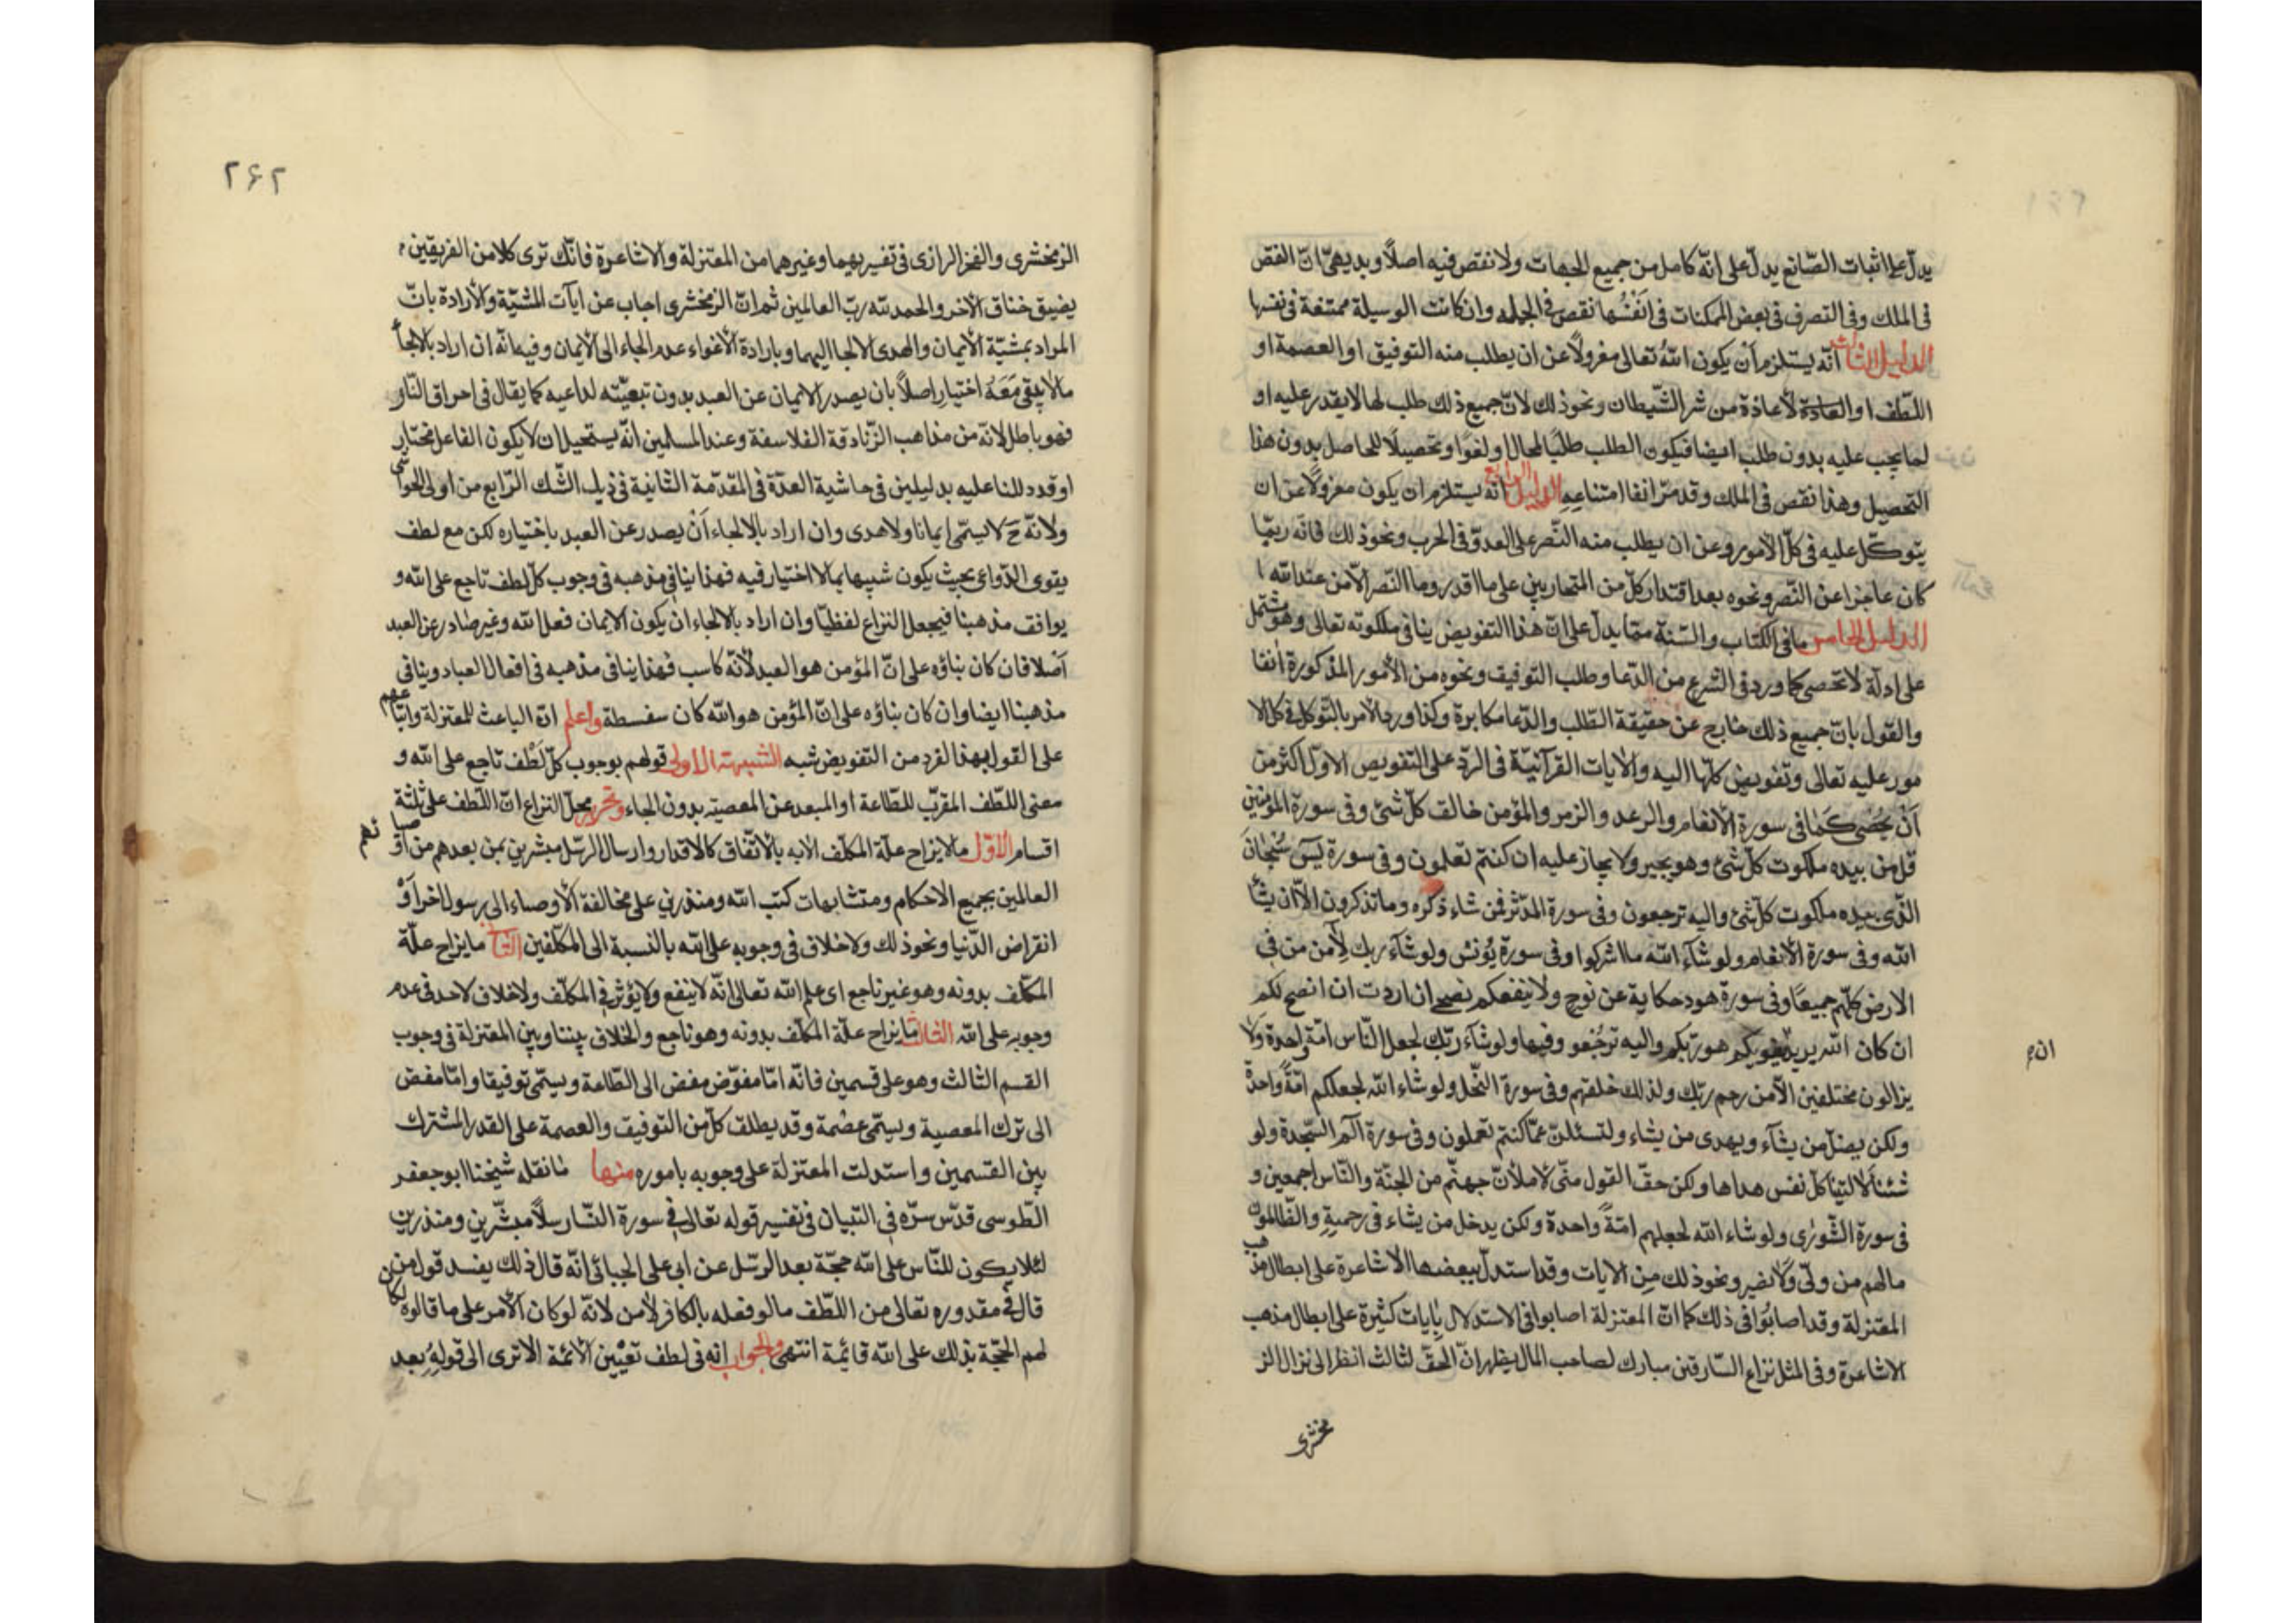 يدلّ على اثبات الصّانع يدلّ على انّه كامل من جميع الجهات ولا نقص فيه اصلاً وبديهىّ انّ النقص
فى الملك وفى التصرف فى بعض الممكنات فى انفُسها نقص فى الجمله وان كانت الوسيلة ممتنعة فى نفسها
الدليل الثالث انّه يستلزم أن يكون اللّه تعالى معزولاً عن ان يطلب منه التوفيق او العصمة او
اللّطف او العادة لاعاذة من شر الشّيطان ونحو ذلك لانّ جميع ذلك طلب لما لا يقدر عليه او
لما يجب عليه بدون طلب ايضا فيكون الطلب طلبًا لمحال او لغوًا وتحصيلًا للحاصل بدون هذا
التحصيل وهذا نقص فى الملك وقد مرّ انفا امتناعه الدليل الرابع انّه يستلزم ان يكون معزولاً عن ان
يتوكّل عليه فى كلّ الأمور وعن ان يطلب منه النّصر على العدوّ فى الحرب ونحو ذلك فانّه ربّما
كان عاجزا عن النّصر ونحوه بعد اقتدار كلّ من المتحاربين على ما اقدر وما النّصر الّا من عند اللّه
الدليل الخامس ما فى الكتاب والسّنة ممّا يدلّ على انّ هذا التفويض ينافى ملكوته تعالى وهو مشتمل
على ادلّة لا تحصى كما ورد فى الشرع من الدّعا وطلب التوفيق ونحوه من الأمور المذكورة آنفا
والقول بانّ جميع ذلك خارج عن حقيقة الطّلب والدّعا مكابرة وكذا ورد الامر بالتّوكل فى كلّ الا
مور عليه تعالى وتفويض كلّها اليه والايات القرآنيّة فى الردّ على التفويض الاوّل اكثر من
أن يُحصى كمَا فى سورة الأنعام والرعد والزمر والمؤمن خالق كلّ شئ وفى سورة المؤمنين
قل من بيده ملكوت كلّ شئ وهو يجير ولا يجار عليه ان كنتم تعلمون وفى سورة يسَ سُبحانَ
الّذى بيده ملكوت كلّ شئ واليه ترجعون وفى سورة المدّثر فمن شاء ذكره وما تذكرون الّا ان يشأ
اللّه وفى سورة الأنعام ولو شآء اللّه ما اشركوا وفى سورة يُونسْ ولو شآء ربك لآمن من فى
الارض كلّهم جميعًا وفى سورة هود حكاية عن نوح ولا ينفعكم نصحى ان اردت ان انصح لكم
ان كان اللّه يريد يغويكم هو ربّكم واليه ترجعُو وفيها ولو شآء ربّك لجعل النّاس امّة واحدة ولا
ان م
يزالون مختلفين الّا من رحم ربّك ولذلك خلقهم وفى سورة النّحل ولو شاء اللّه لجعلكم امّةً واحدةً
ولكن يضلّ من يشآء ويهدى من يشاء ولتسئلنّ عمّا كنتم تعملون وفى سورة آلم السّجدة ولو
شئنا لاتينا كلّ نفس هداها ولكن حقّ القول منّى لأملأنّ جهنّم من الجنّة والنّاس اجمعين و
فى سورة الشّورٰى ولو شاء اللّه لجعلهم امّةً واحدة ولكن يدخل من يشاء فى رحمته والظّالمون
مالهم من ولىّ ولا نصير ونحو ذلك مِن الايات وقد استدلّ ببعضها الاشاعرة على ابطال مذهب
المعتزلة وقد اصابُوا فى ذلك كما انّ المعتزلة اصابوا فى الاستدلال بايات كثيرة على ابطال مذهب
الاشاعرة وفى المثل نزاع السّارقين مبارك لصاحب المال يظهر انّ الحقّ لثالث انظر الى نزال الز
مخشرى
٢٤٢
الزمخشرى والفخر الرازى فى تفسيريهما وغيرهما من المعتزلة والاشاعرة فانّك ترى كلا من الفريقين
يضيق خناق الأخر والحمد للّه ربّ العالمين ثم انّ الزمخشرى اجاب عن ايات المشيّة والأرادة بانّ
المراد بمشيّة الأيمان والهدى الالجا اليهما وبارادة الأغواء عدم الجاء الى الأيمان وفيه انّه ان اراد بالالجأ
ما لا يبقى مَعَهُ اختيار اصلاً بان يصدر الايمان عن العبد بدون تبعيّته لداعيه كما يقال فى احراق النّار
فهو باطل لانّه من مذاهب الزّنادقة الفلاسفة وعند المسلمين انّه يستحيل ان لا يكون الفاعل مختار
ا وقد دللنا عليه بدليلين فى حاشية العدّة فى المقدّمة الثّانية فى ذيل الشّك الرّابع من اولى الحواشى
ولانّه حَ لا يسمّى ايمانا ولا هدى وان اراد بالالجاء أن يصدر عن العبد باختياره لكن مع لطف
يقوى الدّواعى بحيث يكون شبيها بما لا اختيار فيه فهذا ينافى مذهبه فى وجوب كلّ لطف ناجع على اللّه و
يوافق مذهبنا فيجعل النزاع لفظيّا وان اراد بالالجاء ان يكون الايمان فعل اللّه وغير صادر عن العبد
أصلا فان كان بناؤه على انّ المؤمن هو العبد لأنّه كاسب فهذا ينافى مذهبه فى افعال العباد وينافى
مذهبنا ايضا وان كان بناؤه على انّ المؤمن هو اللّه كان سفسطة واعلم انّ الباعث للمعتزلة واتباعهم
على القول بهذا الفرد من التفويض شبه الشبهة الاولى قولهم بوجوب كلّ لُطْف ناجع على اللّه و
معنى اللّطف المقرّب للطّاعة او المبعد عن المعصية بدون الجاء وتحرير محلّ النزاع انّ اللّطف على ثلثة
اقسام الاوّل ما لا يزاح علّة المكلّف الا به بالأتّفاق كالاقدار وارسال الرّسل مبشرين بمن بعدهم من اوصيائهم
العالمين بجميع الاحكام ومتشابهات كتب اللّه ومنذرين على مخالفة الأوصياء الى رسول اخر أوْ
انقراض الدّنيا ونحو ذلك ولا خلاف فى وجوبه على اللّه بالنسبة الى المكلّفين الثانى ما يزاح علّة
المكلّف بدونه وهو غير ناجع اى علم اللّه تعالى انّه لا ينفع ولا يؤثر فى المكلّف ولا خلاف لاحد فى عدم
وجوبه على اللّه الثالث ما يزاح علّة المكلّف بدونه وهو ناجع والخلاف بيننا وبين المعتزلة فى وجوب
القسم الثالث وهو على قسمين فانّه امّا مفوّض مفض الى الطّاعة ويسمّى توفيقا وامّا مفض
الى ترك المعصية ويسمّى عصْمة وقد يطلق كلّ من التوفيق والعصمة على القدر المشترك
بين القسمين واستدلت المعتزلة على وجوبه بامور منها ما نقله شيخنا ابو جعفر
الطّوسى قدّس سرّه فى التبيان فى تفسير قوله تعالى فى سورة النّسا رسلاً مبشّرين ومنذرين
لئلا يكون للنّاس على اللّه حجّة بعد الرسّل عن ابى على الجبائى انّه قال ذلك يفسد قول من
قال فى مقدوره تعالى من اللّطف ما لو فعله بالكافر لأمن لانّه لو كان الأمر على ما قالوه لكان
لهم الحجّة بذلك على اللّه قائمة انتهى والجواب انه فى لطف تعيْين الأئمّة الا ترى الى قولهِ بعد